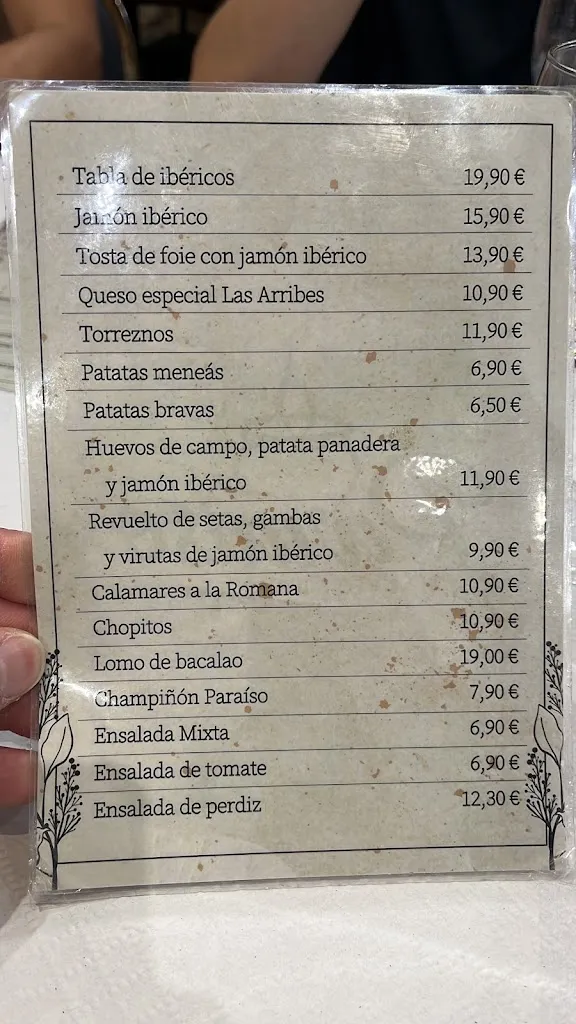 Tabla de ibéricos 19,90 €
Jamón ibérico 15,90 €
Tosta de foie con jamón ibérico 13,90 €
Queso especial Las Arribes 10,90 €
Torreznos 11,90 €
Patatas meneás 6,90 €
Patatas bravas 6,50 €
Huevos de campo, patata panadera
y jamón ibérico 11,90 €
Revuelto de setas, gambas
y virutas de jamón ibérico 9,90 €
Calamares a la Romana 10,90 €
Chopitos 10,90 €
Lomo de bacalao 19,00 €
Champiñón Paraíso 7,90 €
Ensalada Mixta 6,90 €
Ensalada de tomate 6,90 €
Ensalada de perdiz 12,30 €